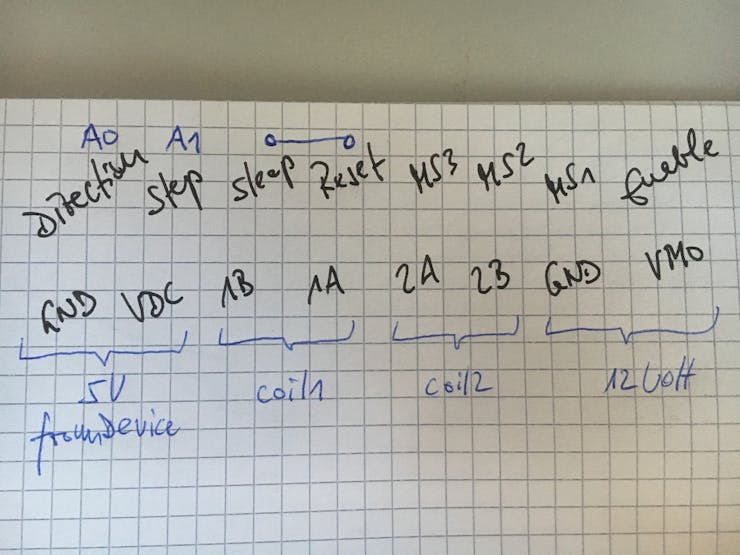 A0 A1
Direction Step Sleep Reset MS3 MS2 MS1 Eneble
GND VDC 1B 1A 2A 2B GND VMO
5V coil1 coil2 12Volt
from Device